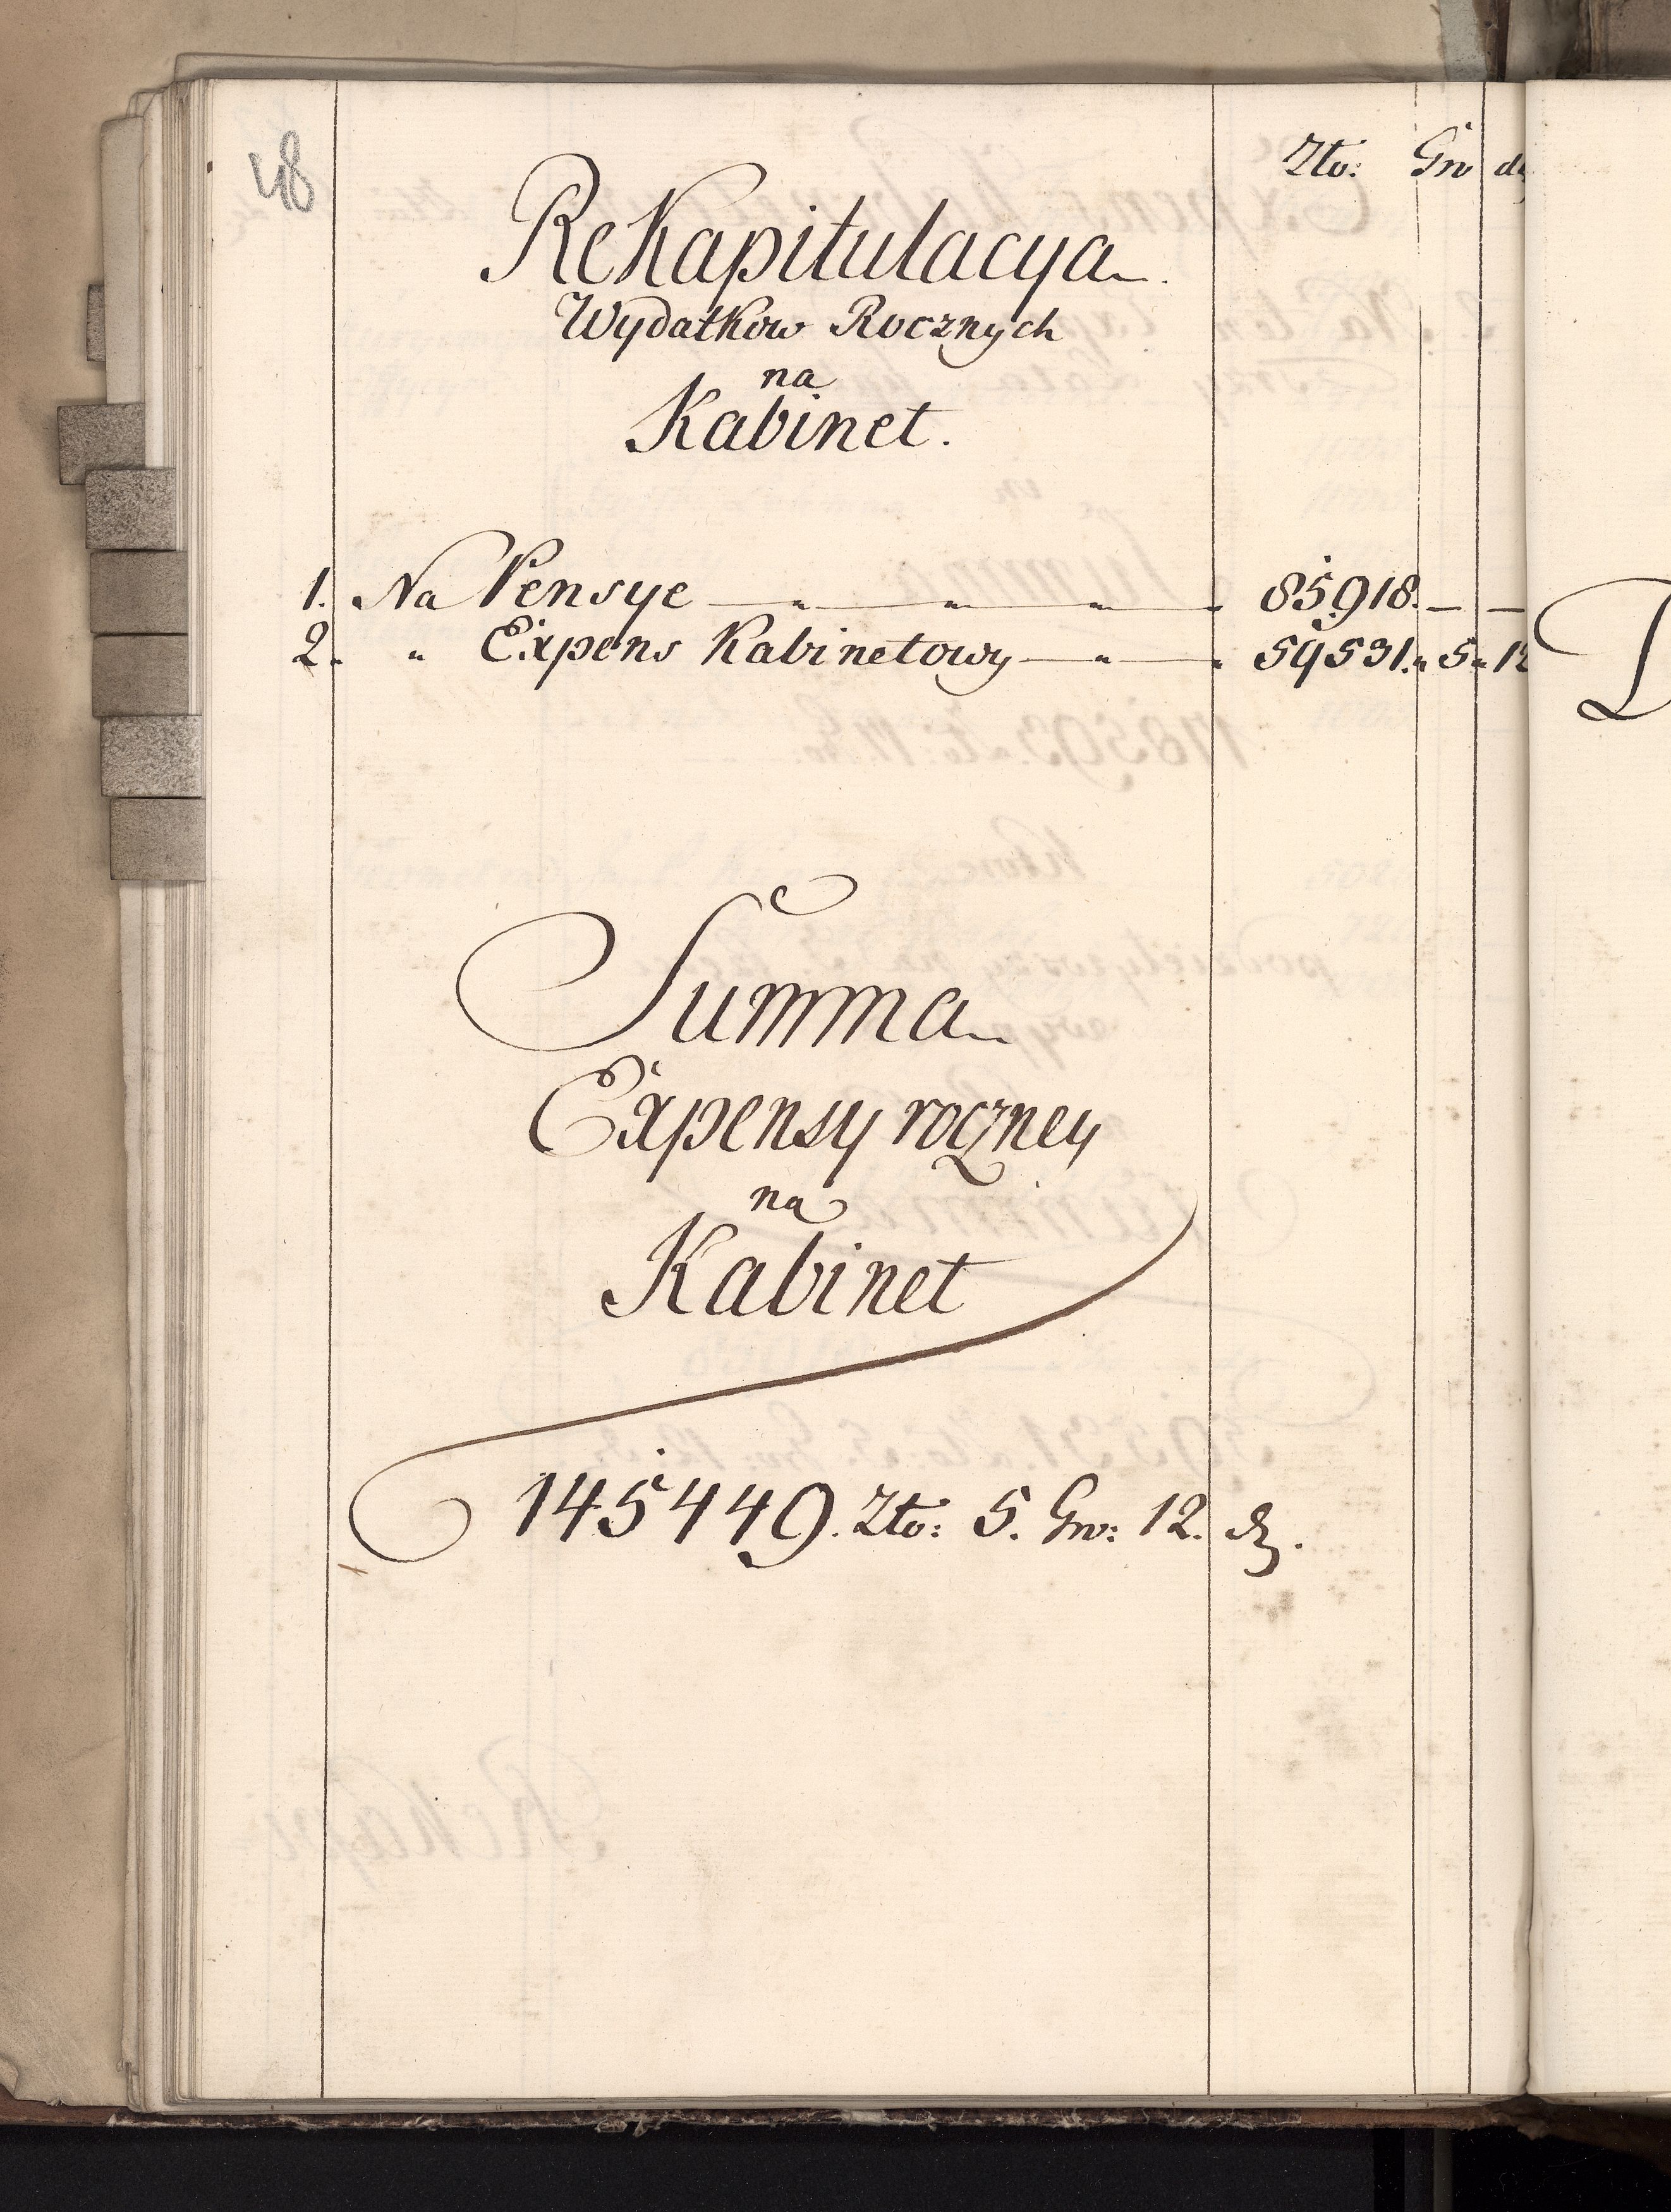 48
Zło: Gro de
Rekapitulacya
Wydatkow Rocznych
na
Kabinet.
1. Na Pensye — „ — „ — „ — „ 85918. — —
2. „ Expens Kabinetowy — „ — „ 59531. „ 5 „ 12
Summa
Expensy roczney
na
Kabinet
145449. Zło: 5. Gro: 12. d.